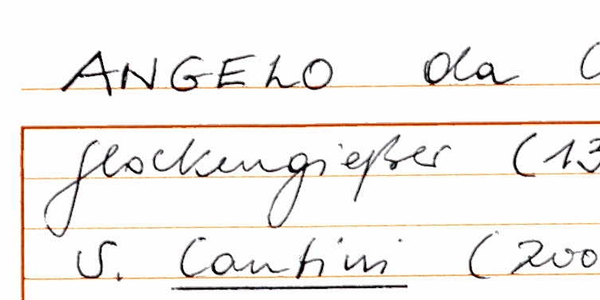 ANGELO da
Glockengießer (13
S. Cantini (200